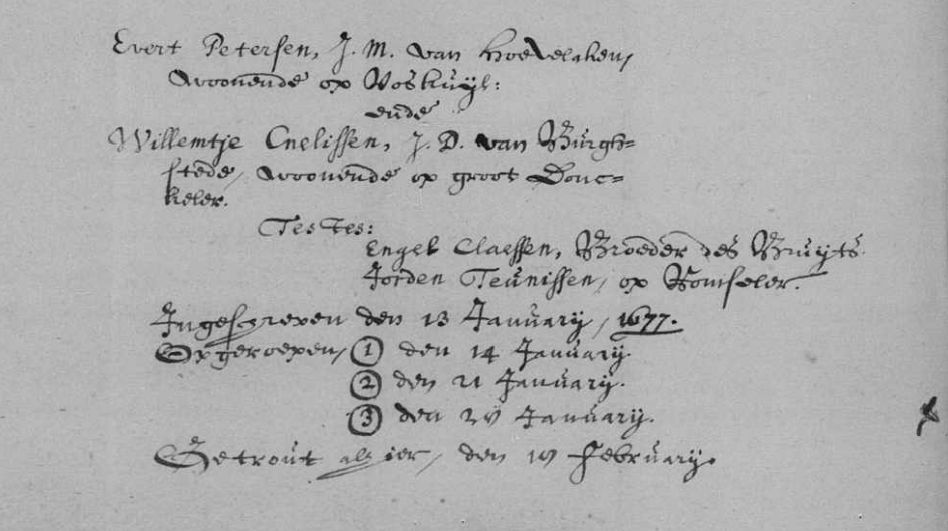 Evert Petersen, J. M. van Hoevelaken,
woonende op Voskuyl:
ende
Willemtje Cnelissen, J. D. van Burgh=
stede, woonende op groot Donc=
keler.
Testes:
Engel Claessen, Broeder des Bruyts.
Jorden Teunissen, op Romseler.
Ingescreven den 13 January, 1677.
Opgeroepen, ① den 14 January.
② den 21 January.
③ den 28 January.
Getrout alhier, den February.